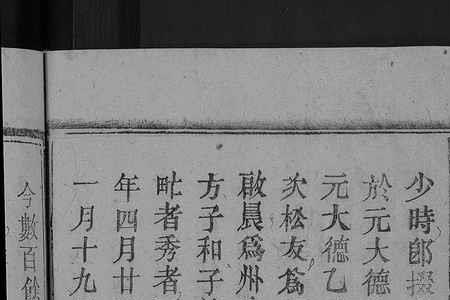 少時郎掇
於元大德
元大德乙
次松友爲
啟晨爲州
方子和子
畝者秀者
年四月廿
一月十九
今數百餘